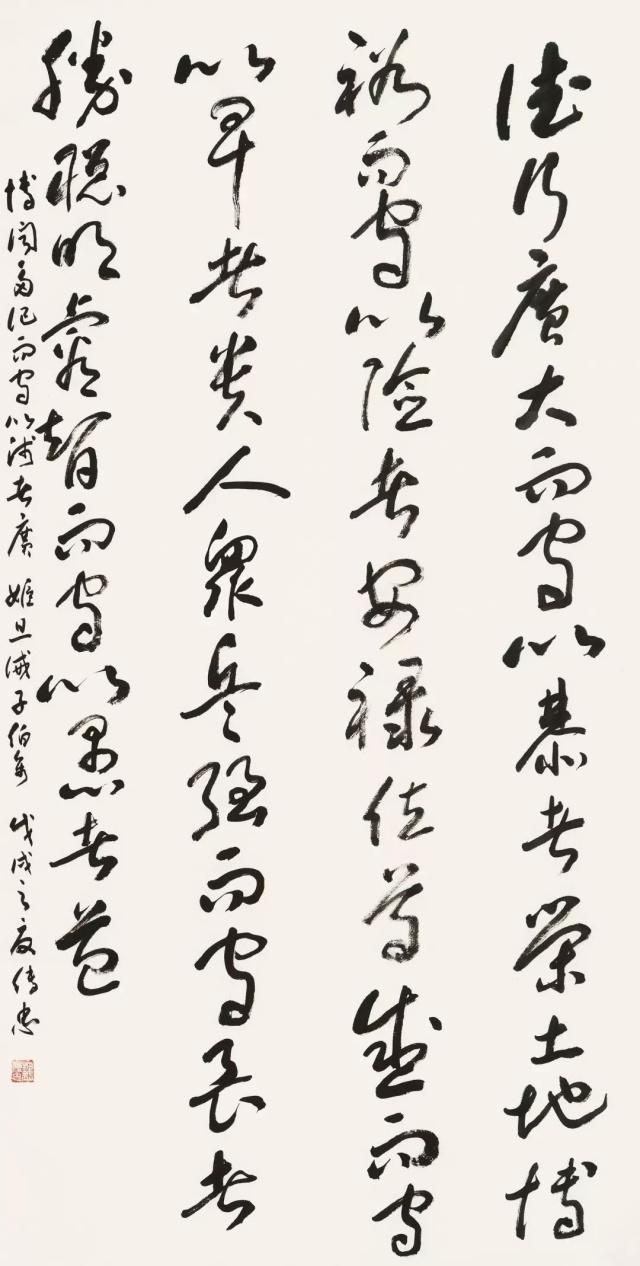 德行廣大而守以恭者榮土地博
裕而守以险者安禄位尊盛而守
以卑者贵人眾兵强而守畏者
勝聪明睿智而守以愚者益
博闻多记而守以浅者廣 姬旦诫子伯禽 戊戌之夏传忠